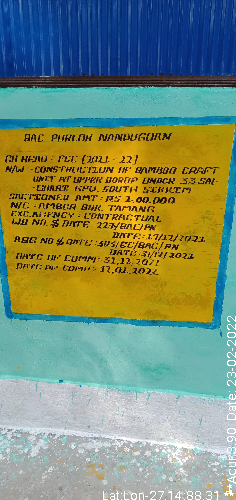 BAC PHRLOK NANDUGURN
GR HEAD : FCC (2021 - 22)
N/W - CONSTRUCTION OF BAMBOO CRAFT
UNIT AT UPPER BOROP UNDER 33 SAL
GHARI GPU, SOUTH SIKKIM
SANCTIONED AMT : RS 2.00.000
N/C - AMBER BDR. TAMANG
EXC. AGENCY - CONTRACTUAL
WO NO & DATE 227/BAC/PN
DATE: 17/12/2021
DATE 31/12/2021
DATE OF COMM: 31.12.2021
DATE OF COMP:
Lat Lon-27.14:88.31
Date: 23-02-2022